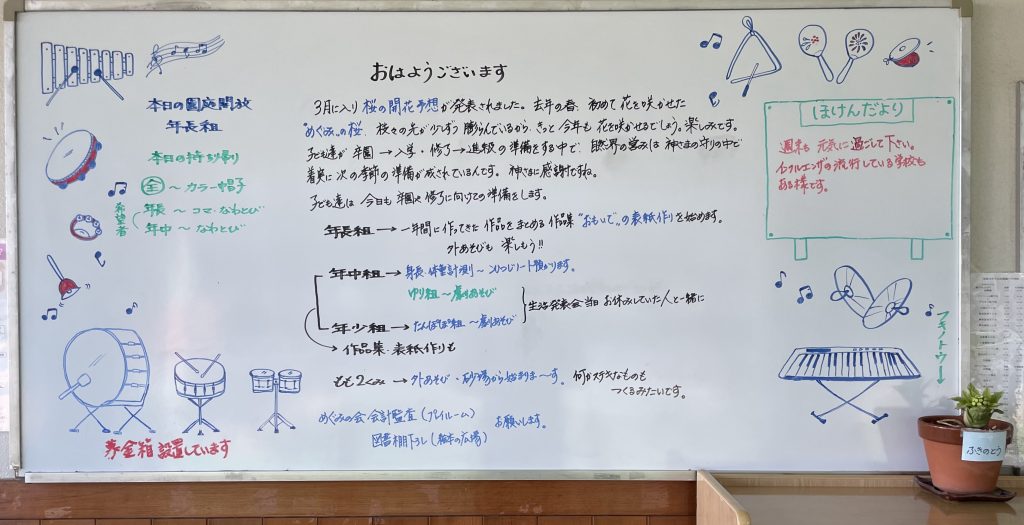 おはようございます
本日の園庭開放
年長組
本日の持ち帰り
全～カラー帽子
希望者
年長～コマ・なわとび
年中～なわとび
3月に入り桜の開花予想が発表されました。去年の春、初めて花を咲かせた
"めぐみ"の桜、枝々の先が少しずつ膨らんでいるから、きっと今年も花を咲かせるでしょう。楽しみです。
子ども達が卒園→入学・修了→進級の準備をする中で、自然界の営みは神さまの守りの中で
着実に次の季節の準備が成されているんです。神さまに感謝ですね。
子ども達は今日も卒園や修了に向けての準備をします。
年長組→一年間に作ってきた作品をまとめる作品集"おもいで"の表紙作りを始めます。
外あそびも楽しもう!!
年中組→身長・体重計測～ひつじノート預かります。
ゆり組～劇あそび
年少組→たんぽぽ組～劇あそび
生活発表会当日お休みしていた人と一緒に
→作品集・表紙作りも
もも2くみ→外あそび・砂場から始まりま～す。何かステキなものも
つくるみたいです。
めぐみの会・会計監査(プレイルーム)
図書棚下し(絵本の広場)
お願いします。
募金箱設置しています
ほけんだより
週末も元気に過ごして下さい。
インフルエンザの流行している学校も
ある様です。
フキノトウー→
ふきのとう